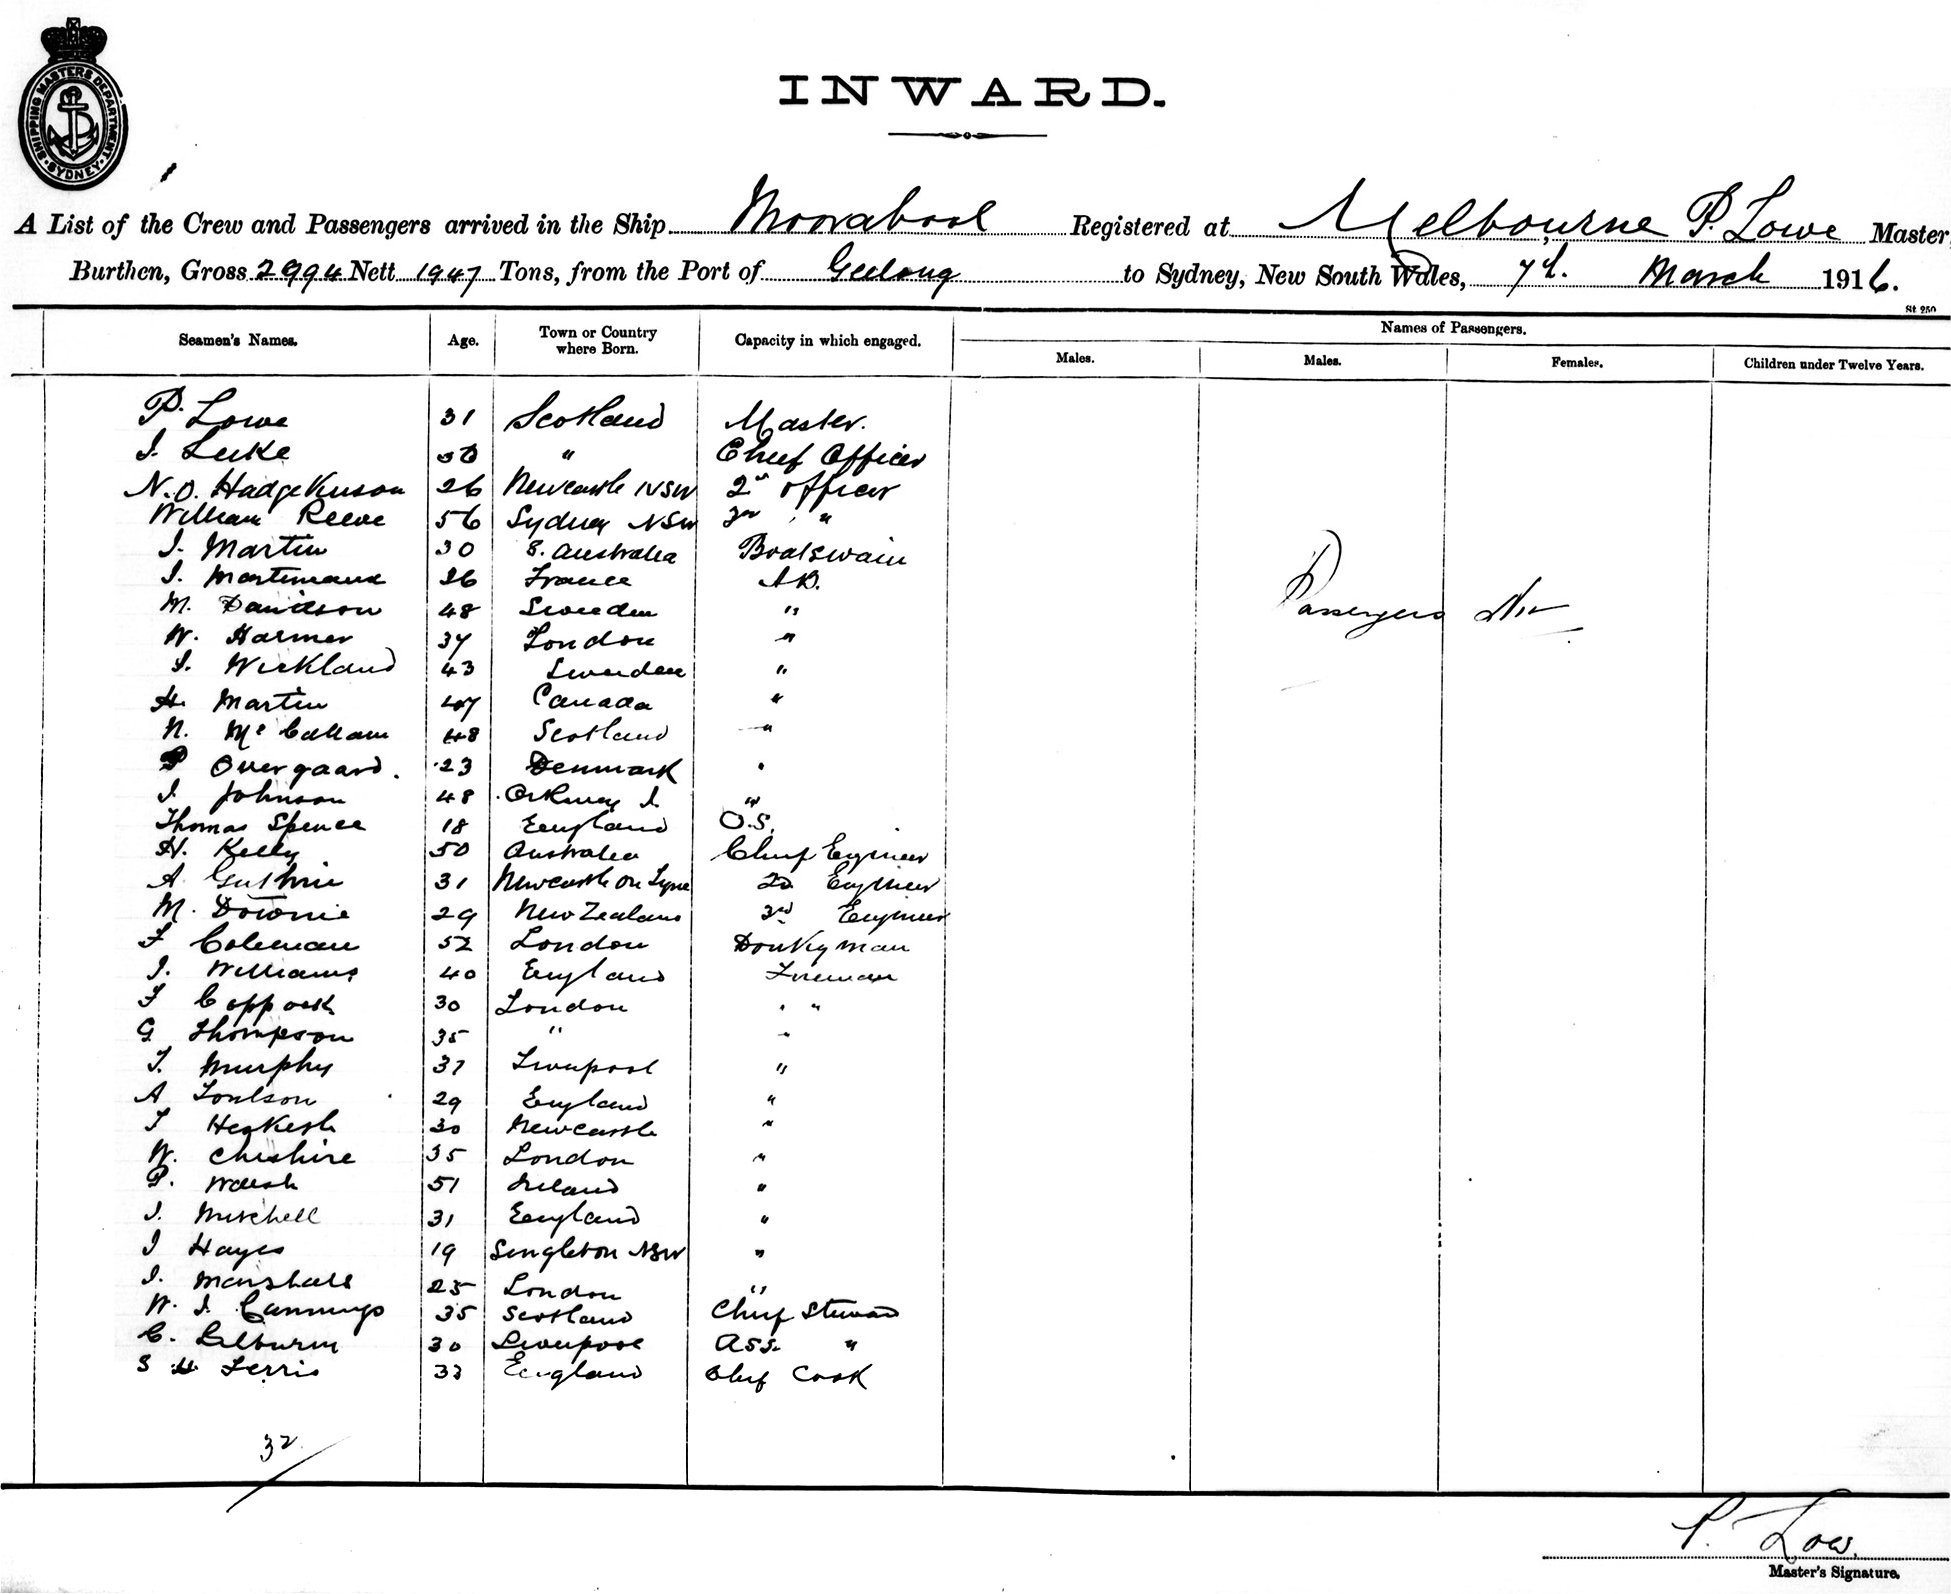 SHIPPING MASTERS DEPARTMENT
SYDNEY
INWARD.
A List of the Crew and Passengers arrived in the Ship Moorabool Registered at Melbourne P. Lowe Master,
Burthen, Gross 2994 Nett 1947 Tons, from the Port of Geelong to Sydney, New South Wales, 7th. March 1916.
St 250
Seamen's Names. Age. Town or Country where Born. Capacity in which engaged. Names of Passengers.
Males. Males. Females. Children under Twelve Years.
P. Lowe 31 Scotland Master.
J. Luke " Chief Officer
N. O. Hadgekinson 26 Newcastle NSW 2nd Officer
William Reeve 56 Sydney NSW 3rd "
J. Martin 30 S. Australia Boatswain
J. 26 France A.B.
M. Davidson 48 Sweden "
W. Harmer 37 London "
Passengers Nil
J. Wickland 43 Sweden "
H. Martin 47 Canada "
N. McCallam 48 Scotland "
P Overgaard. 23 Denmark "
J. Johnson 48 Orkney I. "
Thomas Spence 18 England O.S.
H. Kelly 50 Australia Chief Engineer
A Guthrie 31 Newcastle on Tyne 2d Engineer
M. Downie 29 New Zealand 3rd Engineer
F Coleman 52 London Donkeyman
J. Williams 40 England Fireman
F Coppock 30 London " "
G Thompson 35 " "
T. Murphy 37 Liverpool "
A Toulson 29 England "
T 30 Newcastle "
W. Cheshire 35 London "
P. Walsh 51 Ireland "
J. Mitchell 31 England "
J Hayes 19 Singleton NSW "
J. Marshall 25 London "
W. J. Cannings 35 Scotland Chief Steward
C. Lilburn 30 Liverpool Ass. "
S H Ferris 33 England Chief Cook
32
P. Lowe.
Master's Signature.